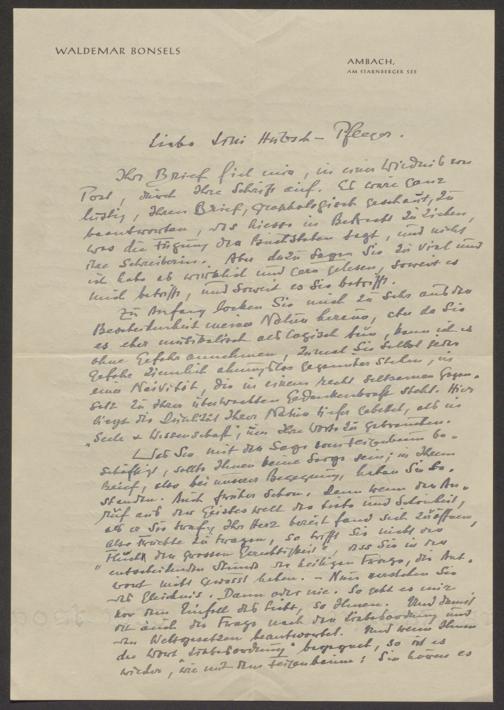 WALDEMAR BONSELS
AMBACH,
AM STARNBERGER SEE
Liebe Loni Hutsch-Pfleger.
Ihr Brief fiel mir, in einer Wildnis von
Post, durch Ihre Schrift auf. Es wäre ganz
lustig, Ihren Brief, graphologisch geschaut, zu
beantworten, das hiesse in Betracht zu ziehen,
was die Fügung der Buchstaben sagt, und nicht
ihre Schreiberin. Aber dazu sagen Sie zu viel und
ich habe es wirklich und gern gelesen, soweit es
mich betrifft, und soweit es Sie betrifft.
Zu Anfang locken Sie mich zu sehr aus der
Bescheidenheit meiner Natur heraus, aber da Sie
es eher musikalisch als logisch tun, kann ich es
ohne Gefahr annehmen, zumal Sie selbst jeder
Gefahr ziemlich ahnungslos gegenüber stehn, in
einer Naivität, die in einem recht seltsamen Gegen-
satz zu Ihrer überwachten Gedankenkraft steht. Hier
liegt die Dualität Ihrer Natur tiefer gebettet, als in
"Seele & Wissenschaft", um Ihre Worte zu gebrauchen.
Was Sie mit der Sage vom be-
schäftigt, sollte Ihnen keine Sorge sein; in Ihrem
Brief, also bei unserer Begegnung, haben Sie be-
standen. Auch früher schon. Denn wenn der An-
ruf aus der Geisteswelt der Liebe und Schönheit,
als er Sie traf, Ihr Herz bereit fand sich zu öffnen,
also Früchte zu tragen, so trifft Sie nicht der
"Fluch der grossen Gerechtigkeit", dass Sie in der
entscheidenden Stunde der heiligen Frage, die Ant-
wort nicht gewusst haben. – Nun verstehen Sie
das Gleichnis. Dann oder nie. So geht es mir
vor dem Einfall des Lichts, so Ihnen. Und damit
ist auch die Frage nach der und
den Weltgesetzen beantwortet. Und wenn Ihnen
das Wort begegnet, so ist es
wieder, wie mit dem : Sie hören es